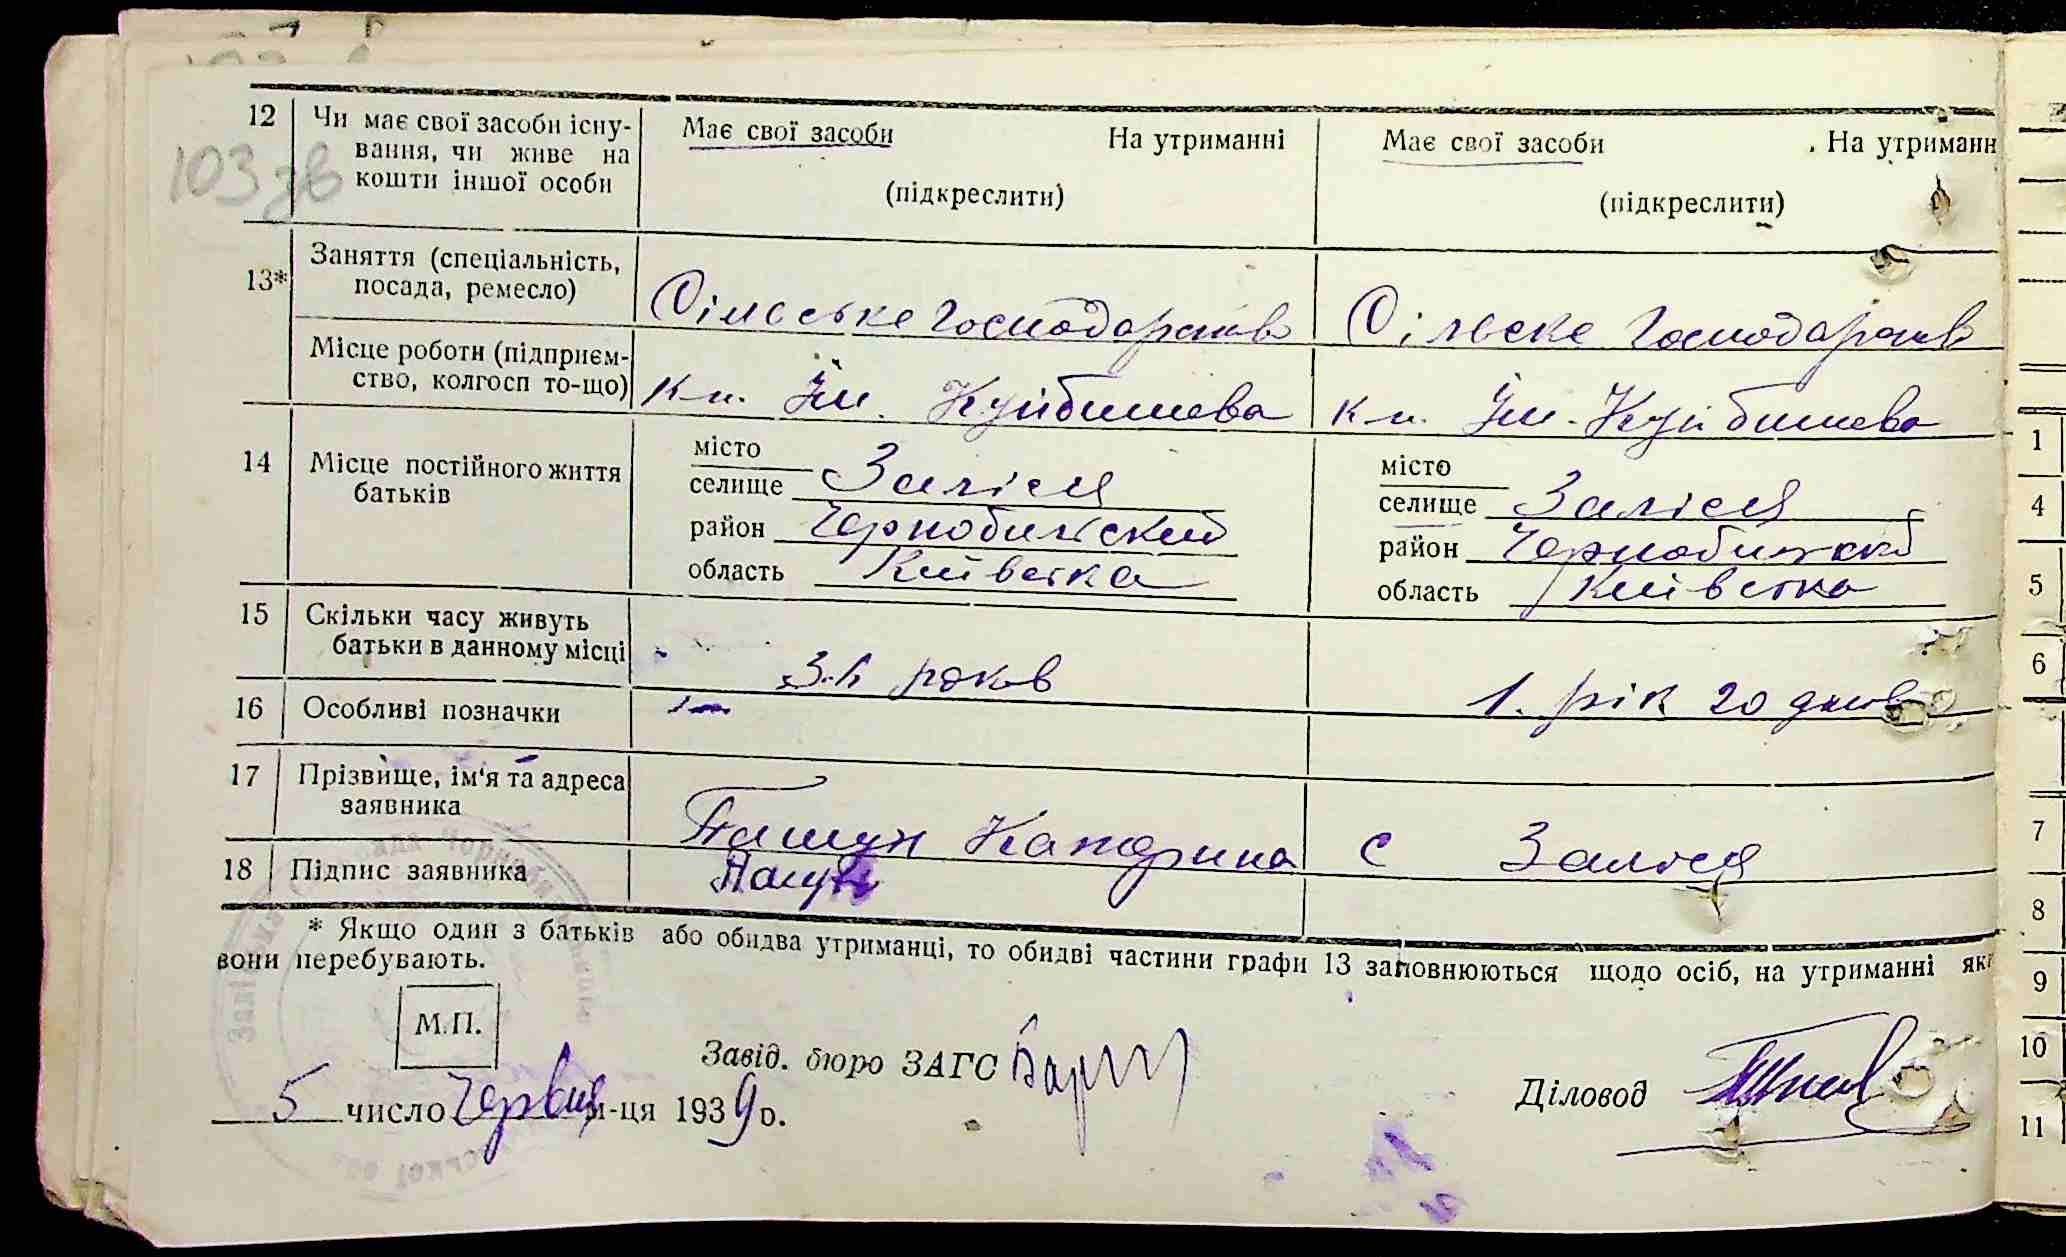 12 Чи має свої засоби існу- Має свої засоби На утриманні Має свої засоби На утриманн
вання, чи живе на
103 зв кошти іншої особи (підкреслити) (підкреслити)
Заняття (спеціальність,
13* посада, ремесло) Сільське господарство Сільске господарство
Місце роботи (підприєм-
ство, колгосп то-що) Кл. Ім. Куйбишева Кл. Ім. Куйбишева
14 Місце постійного життя місто місто
батьків селище Залісся селище Залісся
район Чернобильский район
область Київска область Київска
15 Скільки часу живуть
батьки в данному місці років 1. рік 20 днів
16 Особливі позначки
17 Прізвище, ім'я та адреса
заявника Катерина с Залісся
18 Підпис заявника
* Якщо один з батьків або обидва утриманці, то обидві частини графи 13 заповнюються щодо осіб, на утриманні як
вони перебувають.
М.П.
Завід. бюро ЗАГС
Діловод
5 число Червня м-ця 1939 р.
1
4
5
6
7
8
9
10
11